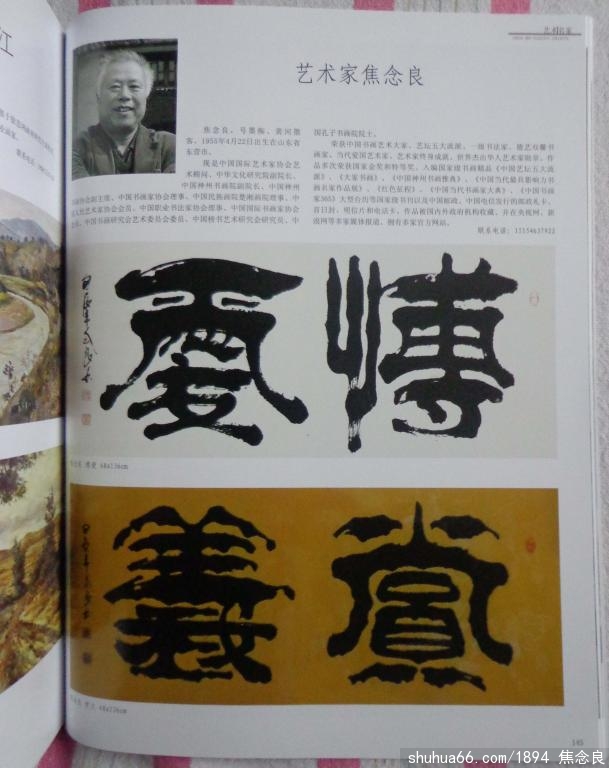 江
艺术名家
艺术家焦念良
焦念良，号墨梅、黄河散
客，1955年4月22日出生在山东省
东营市。
我是中国国际艺术家协会艺
术顾问、中华文化研究院副院长、
中国神州书画院副院长、中国神州
协会副主席、中国书画家协会理事、中国民族画院楚湘画院理事、中
文艺艺术家协会会员、中国职业书法家协会理事、中国国际书画家协会
中国书画研究会艺术委员会委员、中国榜书艺术研究会研究员、中
国孔子书画院院士。
荣获中国书画艺术大家、艺坛五大流派、一级书法家、德艺双馨书
画家、当代爱国艺术家、艺术家终身成就、世界杰出华人艺术家勋章。作
品多次荣获国家金奖和特等奖。入编国家级书画精品《中国艺坛五大流
派》、《大家书画》、《中国神州书画推典》、《中国当代最具影响力书
画名家作品展》、《红色征程》、《中国当代书画家大典》、《中国书画
家365》大型台历等国家级书刊以及中国邮政、中国电信发行的邮政礼卡、
首日封、明信片和电话卡。作品被国内外政府机构收藏，并在央视网、新
浪网等多家媒体报道，拥有多家官方网站。
联系电话：15154637922
博爱
博爱 68x136cm
赏义
68x136cm
145
shuhua66.com/1894 焦念良